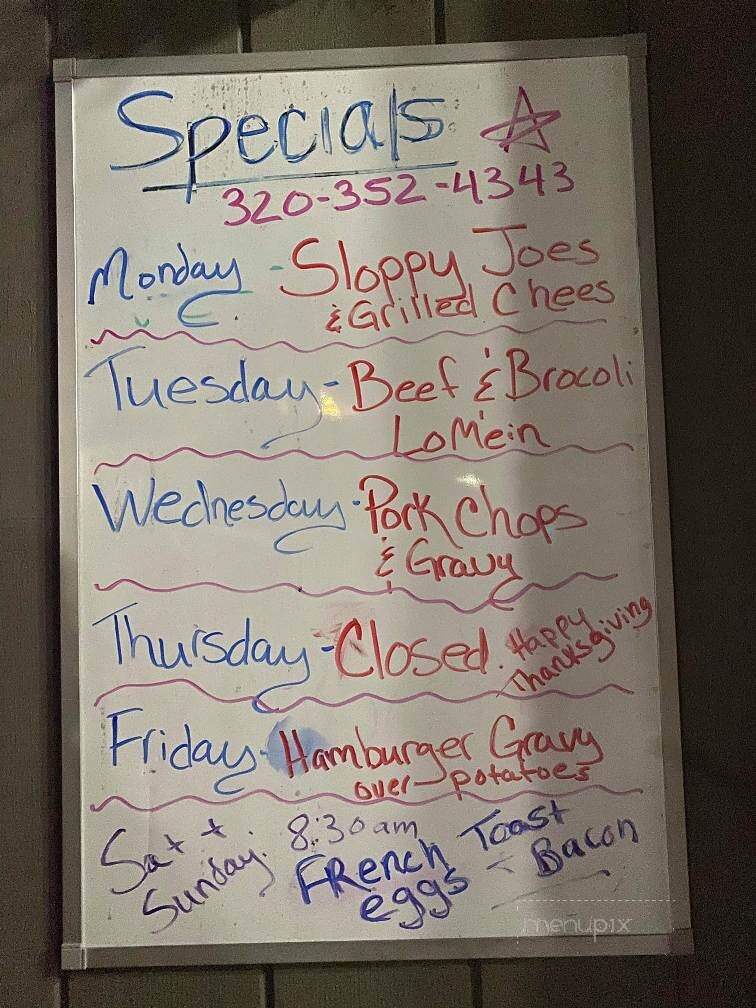 Specials
320-352-4343
Monday - Sloppy Joes
& Grilled Chees
Tuesday - Beef & Brocoli
LoMein
Wednesday - Pork Chops
& Gravy
Thursday - Closed. Happy
Thanksgiving
Friday - Hamburger Gravy
over potatoes
Sat +
Sunday. 8:30am
French Toast
eggs - Bacon
menupix